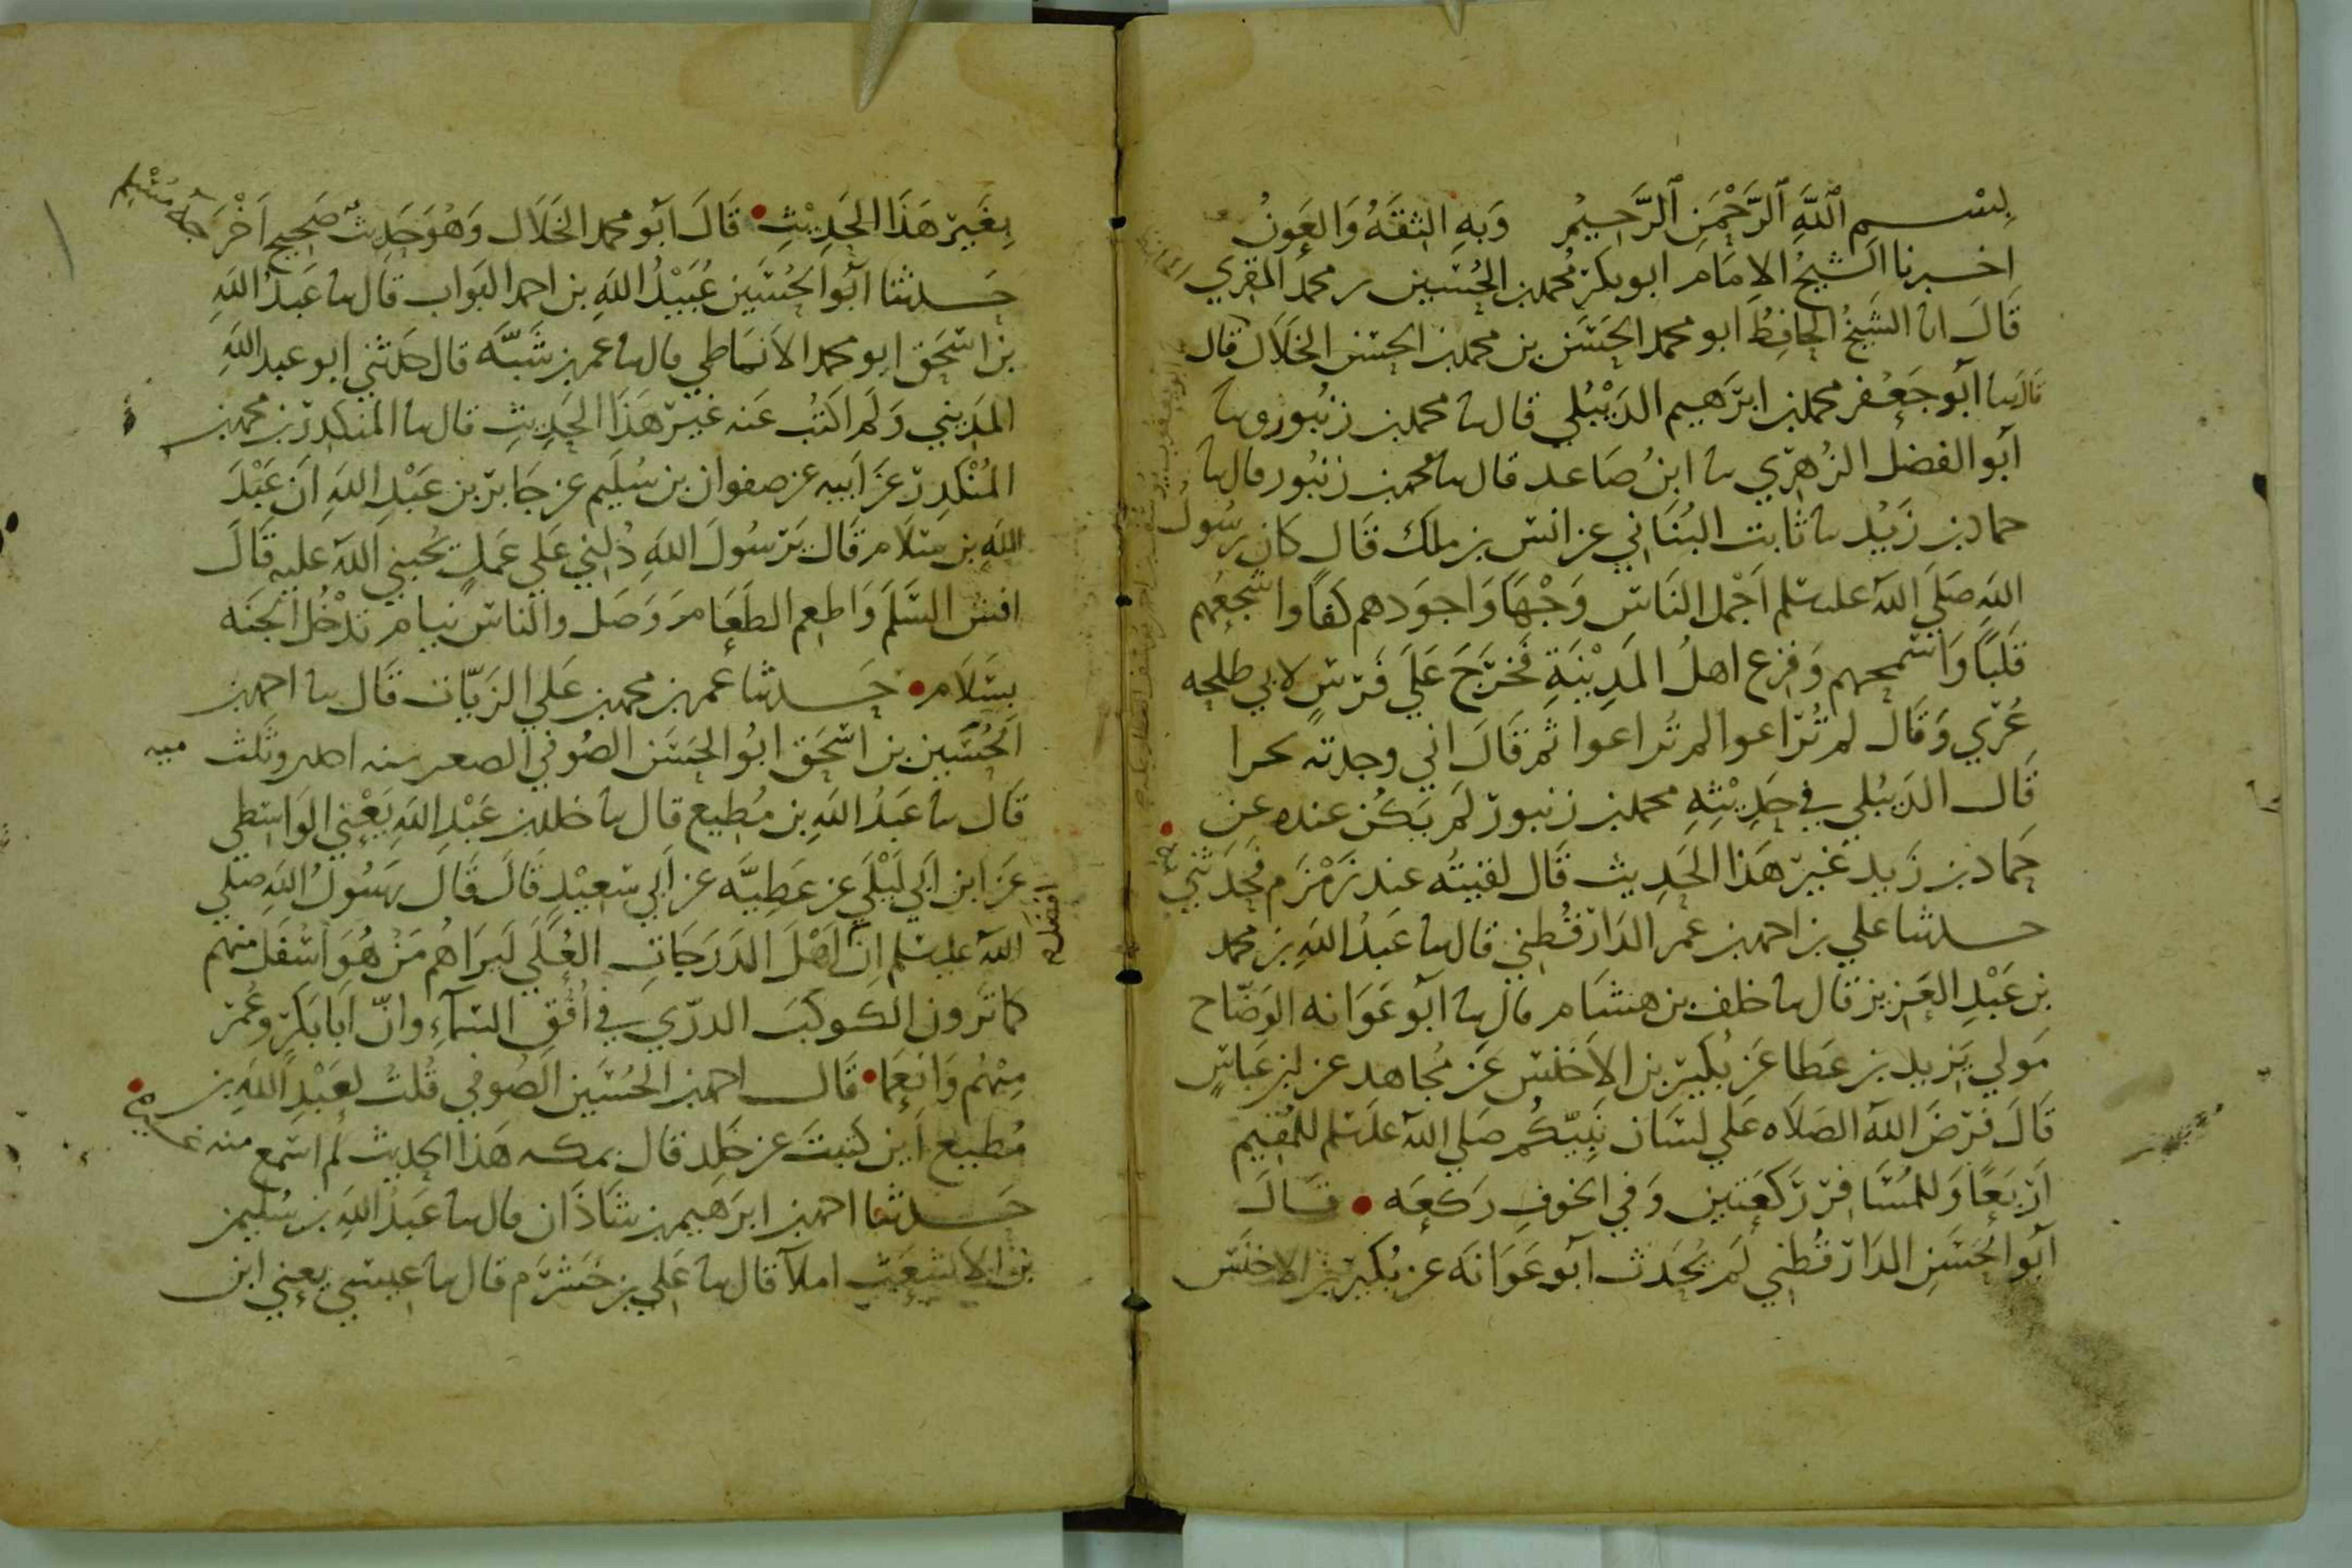 بِسْــمِ اللَّهِ الرَّحْمَنِ الرَّحِيمِ وَبِهِ الثِّقَةُ وَالعَونُ
اخـبرنا الشيخُ الامَام ابو بكر محمد بن الحُسَين بن محمد المقري
قَالَ انا الشَيخُ الحافِظُ ابو محمد الحَسَن بن محمد بن الحسن الخلَّال قال
قال سا ابو جَعْفر محمد بن ابرَهيم الدَيْبُلي قال سا محمد بن زنبور وسا
ابو الفضل الزُهرّي سا ابنُ صَاعد قال سا محمد بن زنبُور قال سا
حماد بن زَيْد سا ثابت البُنَاني عن انس بن ملك قَال كان رسُول
اللهِ صَلى اللهُ علىه وسلم اَجْمل النَاس وَجْهًا وَاجوَدهم كفاً واشجعهم
قَلبًا وَاسمحهم وَفزِع اهلُ المَدِيْنَةِ فَخَرَجَ عَلَى فَرَسٍ لابي طلحه
عُرْي وَقَال لم تُرَاعوا لم تُراعوا ثم قَالَ اني وجدته بحرا
قَال الدَيبُلي في حَدِيْثِهِ محمد بن زنبور لم يَكُن عنده عن
حَمَاد بن زَيد غَير هَذا الحَدِيث قَال لقيتُه عند زَمْزَم فحَدَثَني به
حـدثنا علي بن احمد بن عمر الدَارقُطني قال سا عَبدُ اللهِ بن محمد
بن عَبْدِ العَزيز قَال سا خلف بن هِشَام قال سا ابو عَوَانه الوَضّاح
مَولي يَزيد بن عَطا عَن بُكَير بن الاَخنَس عَن مُجاهد عن ابن عَباسٍ
قَالَ فرَضَ اللهُ الصَلَاه عَلي لسَان نَبِيّكُم صَلى اللهُ علىه وسلم للمُقيم
اَرْبَعًا وَللمُسَافِر رَكعَتين وَفي الخوفِ رَكعَه • قَــالَ
اَبو الحَسَنِ الدَارقُطني لَم يُحَدث اَبو عَوَانَه عن بُكَير بن الاخنَس
بِغَيرِ هَذَا الحَدِيْثِ • قَالَ اَبو محمد الخَلَّال وَهُوَ حَدِيثٌ صَحِيح اَخْرَجَهُ مُسْلِم
حَـدثنا اَبُو الحُسَين عُبَيْدُ اللهِ بن احمد البَواب قال سا عَبدُ اللهِ
بن اسْحَق ابو محمد الاَنمَاطي قال سا عمر بن شَبَّه قال حَدثني ابو عبد اللهِ
المَدِيني وَلَم اكتُب عَنه غَيرَ هَذا الحَدِيثِ قال سا المنكدر بن محمد بن
المُنْكدِر عَن اَبيه عن صفوان بن سُلَيم عن جَابر بن عَبْدِ اللهِ اَن عَبْدَ
اللهِ بن سَلَام قَال يَرَسُولَ اللهِ دُلَني عَلي عَملٍ يحُبني اللهُ عليه قَالَ
افشُ السَّلَمَ وَاطعِم الطَعَام وَصَل والنَاسُ نيام تدْخُل الجَنَه
بسَلَام • حَـدثنا عمر بن محمد بن عَلي الزَيّات قَال سا احمد بن
الحُسَين بن اسْحَق ابُو الحَسَن الصُوفي الصغير سنه احدى وثلث ميه
قَال سا عَبدُ اللهِ بن مُطيع قال سا خلد بن عَبْدِ اللهِ يَعْنِي الوَاسِطي
عَن ابن اَبي لَيْلَي عن عَطِيَّه عن اَبي سَعِيْدٍ قَالَ قَالَ رَسُولُ اللهِ صلى
اللهُ علىه وسلم اِنّ اَهْلَ الدَرَجَاتِ العُلَى لَيَراهُم مَن هُوَ اسْفَل منهم
كما تَرَون الكوكبَ الدرّي في اُفُقِ السَمآءِ وانّ اَبَا بَكرٍ وعُمر
مِنْهُم وَاَنعَمَا • قَال احمد بن الحُسَين الصُوفي قُلتُ لعَبْدِ اللهِ بن
مُطيع اَين كَتبتَ عن خَلِد قال بمكه هَذا الحديث لم اسمع منه غيره
حَـدثنا احمد بن ابرَهيم بن شَاذَان قال سا عَبدُ اللهِ بن سُليمن
بن الاشعَث املآ قال سا عَلي بن خَشرَم قال سا عيسى يعني ابن